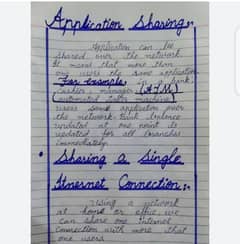 Application Sharing:-
Application can be
shared over the network
It means that more than
one users the same application
For example, in a bank
Cashier, manager (ATM)
(automated teller machine)
users same application over
the network. Bank balance
updated at one point is
updated for all branches
immediately.
Sharing a Single
Internet Connection:-
Using a network
at home or office, we
can share one internet
Connection with more that
one users